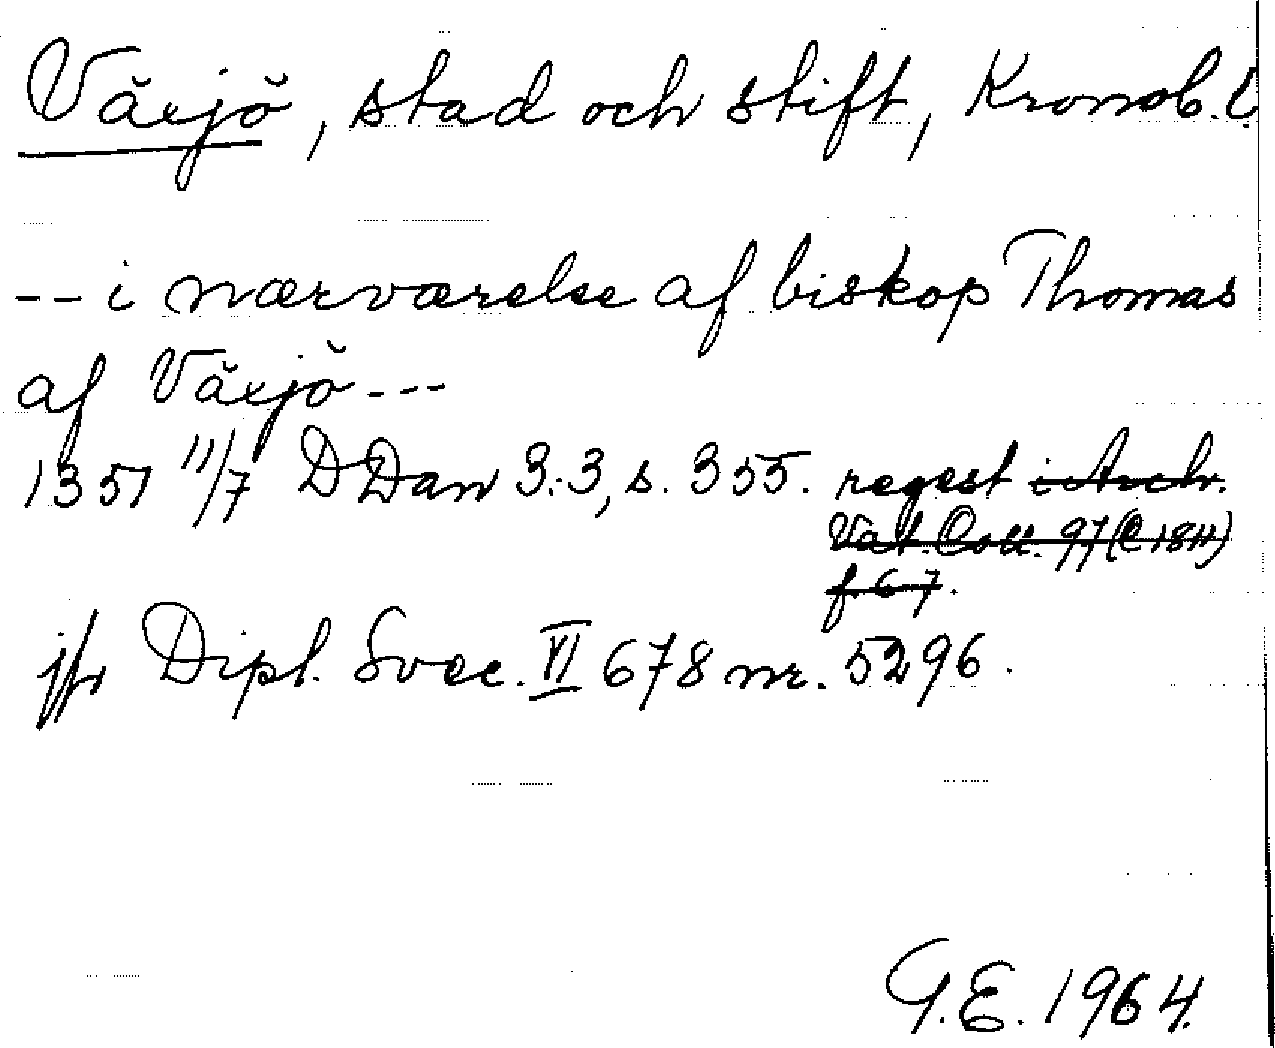 Växjö, stad och stift, Kronob. l.
--i nærværelse af biskop Thomas
af Växjö---
1351 11/7 DDan 3:3, s. 355. regest i Arch.
Vat. Coll. 97 (C 1811)
f. 67.
jfr Dipl. Svec. VI 678 nr. 5296.
G.E. 1964.